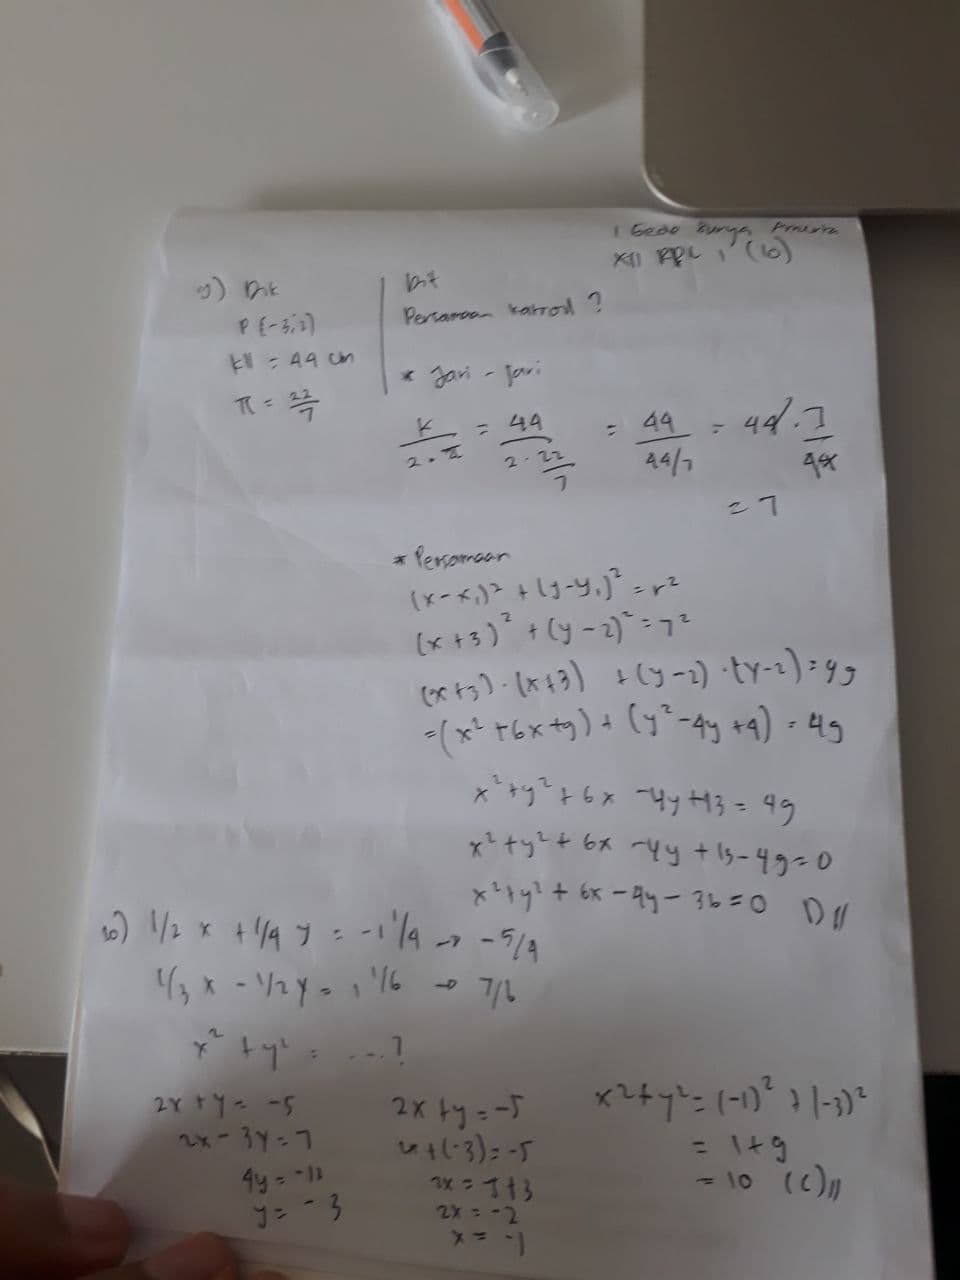 I Gede Surya Amerta
XII RPL 1 (10)
9) Dik
P (-3, 2)
kll = 44 cm
π = 22/7
Dit
Persamaan kartesi ?
* Jari - Jari
k/2.π = 44/2.22/7 = 44/44/7 = 44.7/44
= 7
* Persamaan
(x-x₁)² + (y-y₁)² = r²
(x+3)² + (y-2)² = 7²
(x+3).(x+3) + (y-2).(y-2) = 49
=(x²+6x+9) + (y²-4y+4) = 49
x²+y²+6x-4y+13 = 49
x²+y²+6x-4y+13-49=0
x²+y²+6x-4y-36=0 D//
10) 1/2 x + 1/4 y = -1 1/4 → -5/4
1/3 x - 1/2 y = 1 1/6 → 7/6
x² + y² = ....?
2x + y = -5
2x - 3y = 7
4y = -12
y = -3
2x + y = -5
2x + (-3) = -5
2x = -5+3
2x = -2
x = -1
x²+y² = (-1)² + (-3)²
= 1+9
= 10 (C)//